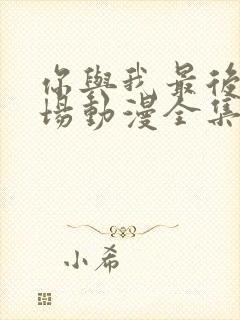 你與我最後
場動漫全集
小希